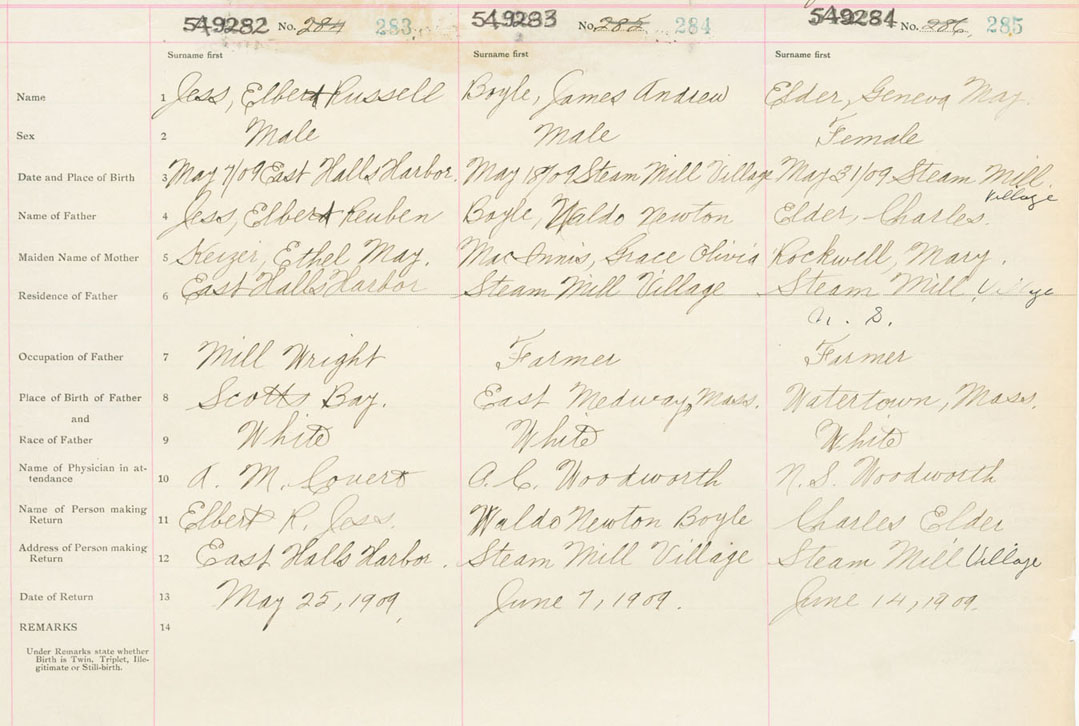 549282 No. 284 283 549283 No. 285 284 549284 No. 286 285
Surname first Surname first Surname first
Name 1 Jess, Elbert Russell Boyle, James Andrew Elder, Geneva May.
Sex 2 Male Male Female
Date and Place of Birth 3 May 7/09 East Halls Harbor. May 18/09 Steam Mill Village May 31/09 Steam Mill.
Village
Name of Father 4 Jess, Elbert Reuben Boyle, Waldo Newton Elder, Charles.
Maiden Name of Mother 5 Keizer, Ethel May. MacInnis, Grace Olivia Rockwell, Mary.
Residence of Father 6 East Halls Harbor Steam Mill Village Steam Mill Village
N. S.
Occupation of Father 7 Mill Wright Farmer Farmer
Place of Birth of Father 8 Scotts Bay. East Medway, Mass. Watertown, Mass.
and
Race of Father 9 White White White
Name of Physician in at-
tendance 10 A. M. Covert A. C. Woodworth N. S. Woodworth
Name of Person making
Return 11 Elbert R. Jess. Waldo Newton Boyle Charles Elder
Address of Person making
Return 12 East Halls Harbor. Steam Mill Village Steam Mill Village
Date of Return 13 May 25, 1909, June 7, 1909. June 14, 1909.
REMARKS 14
Under Remarks state whether
Birth is Twin, Triplet, Ille-
gitimate or Still-birth.